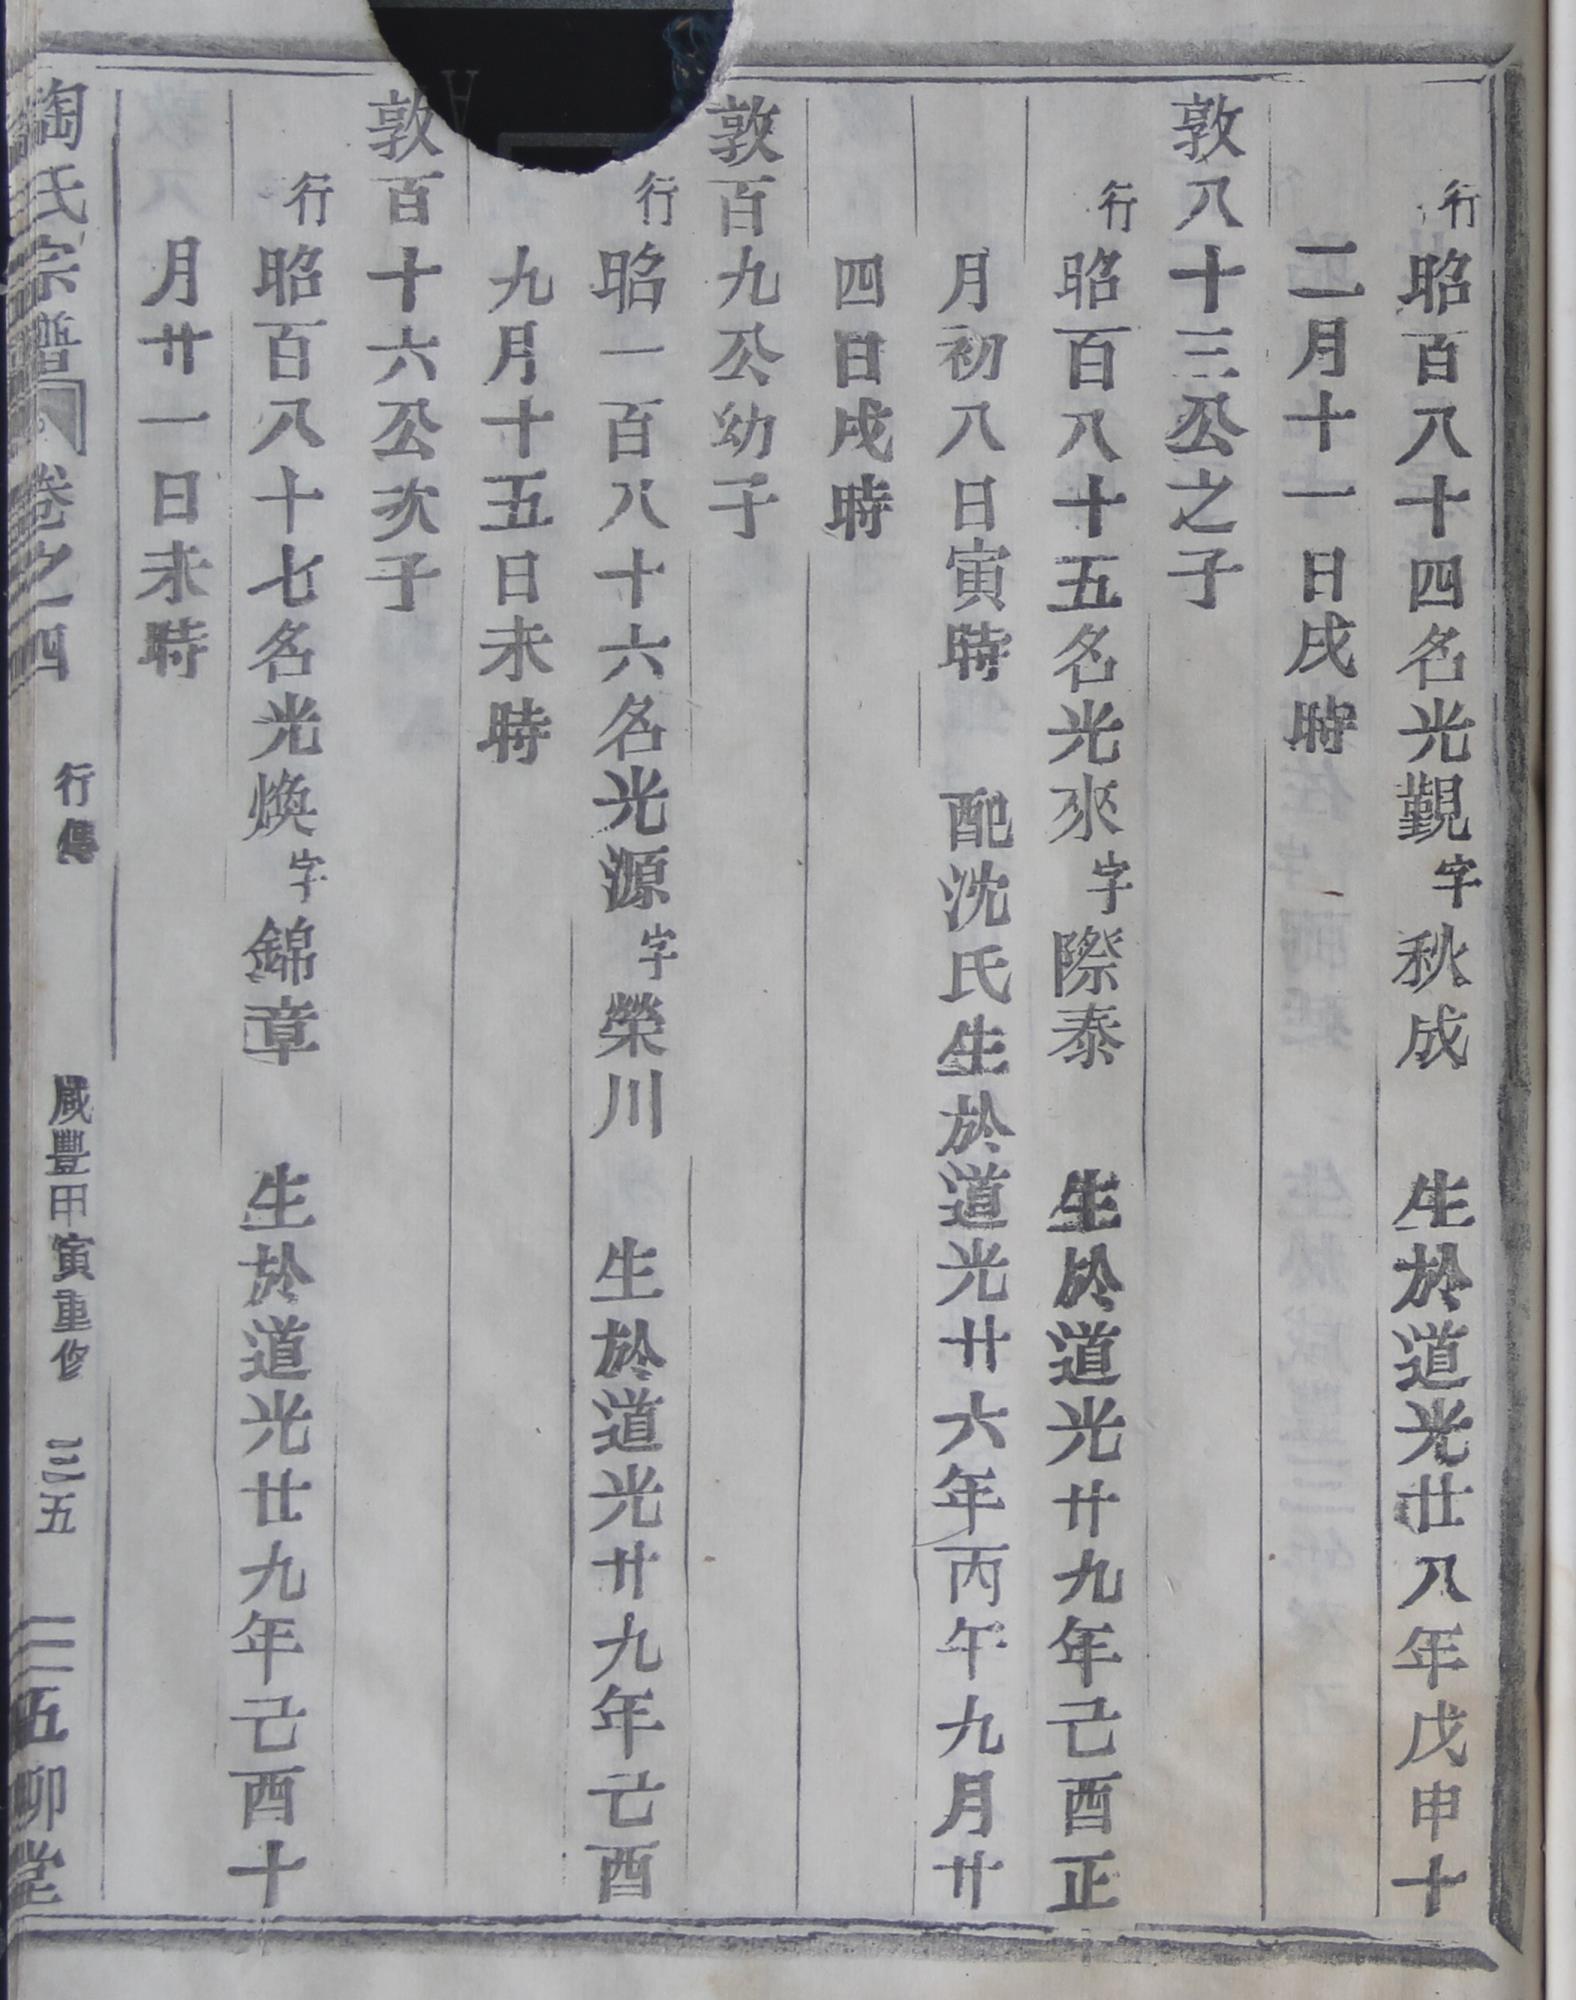 行昭百八十四名光觀字秋成 生於道光廿八年戊申十
二月十一日戌時
敦八十三公之子
行昭百八十五名光來字際泰 生於道光廿九年己酉正
月初八日寅時 配沈氏生於道光廿六年丙午九月廿
四日戌時
敦百九公幼子
行昭一百八十六名光源字榮川 生於道光廿九年己酉
九月十五日未時
敦百十六公次子
行昭百八十七名光煥字錦章 生於道光廿九年己酉十
月廿一日未時
陶氏宗譜 卷之四 行傳 咸豐甲寅重修 三五 五柳堂